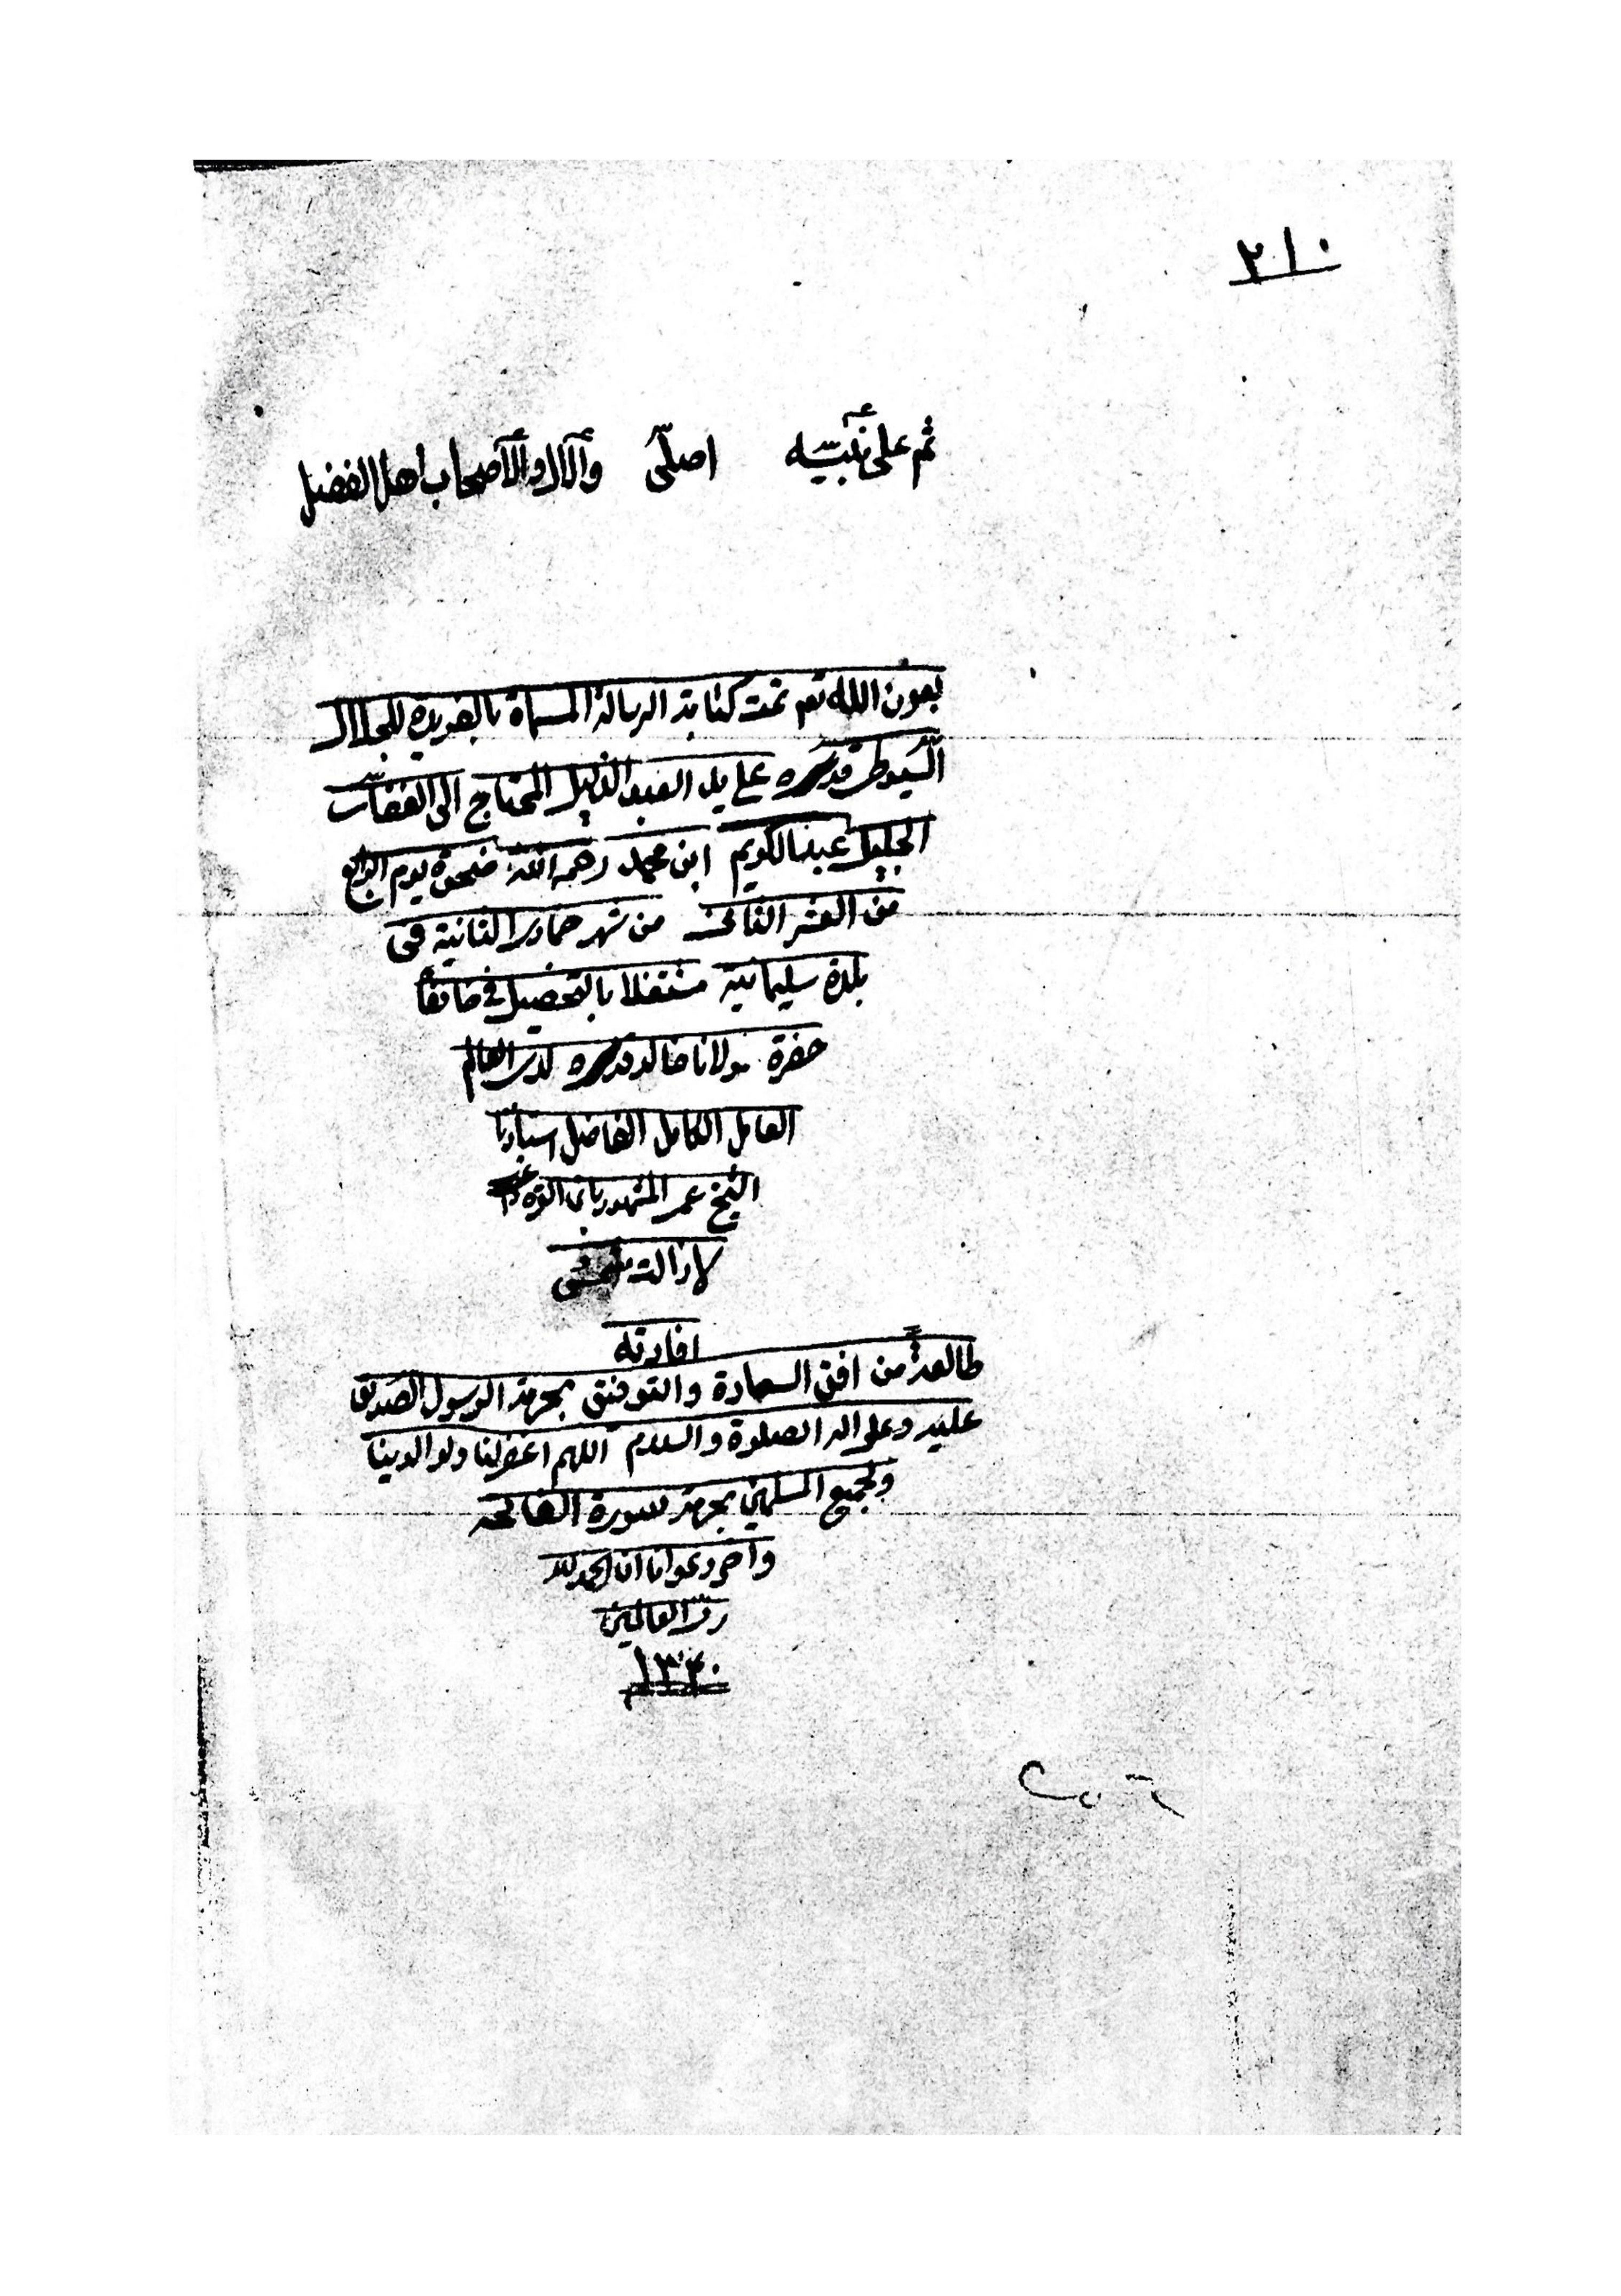 ٢١٠
ثم على نبيه اصلى والآل والأصحاب اهل الفضل
بعون الله تعم تمت كتابة الرسالة المسماة بالفريدة للجلال
السيوطى قدسره على يد العبد الذليل المحتاج الى الغفار
الجليل عبدالكريم ابن محمد رحمه الله ضحوة يوم الرابع
من العشر الثانى من شهر جمادى الثانية فى
بلدة سليمانية مشتغلا بالتحصيل في خانقا
حضرة مولانا خالد قدسره لدى العالم
العامل الكامل الفاضل استاذنا
الشيخ عمر المشهور بابن القره داغى
لازالت شمس
افادته
طالعة من افق السعادة والتوفيق بحرمة الرسول الصديق
عليه وعلى اله الصلوة والسلام اللهم اغفر لنا ولوالدينا
ولجميع المسلمين بحرمة سورة الفاتحه
وآخر دعوانا ان الحمد لله
رب العالمين
١٣٤٠